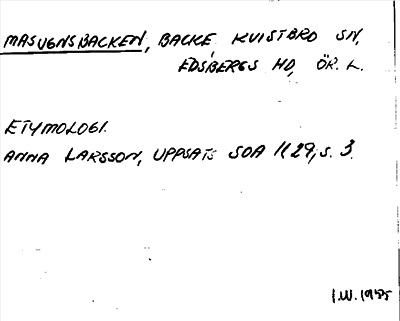 MASUGNSBACKEN, BACKE, KVISTBRO SN,
EDSBERGS HD, ÖR. L.
ETYMOLOGI.
ANNA LARSSON, UPPSATS SOA 1129, S. 3.
I.W. 1985